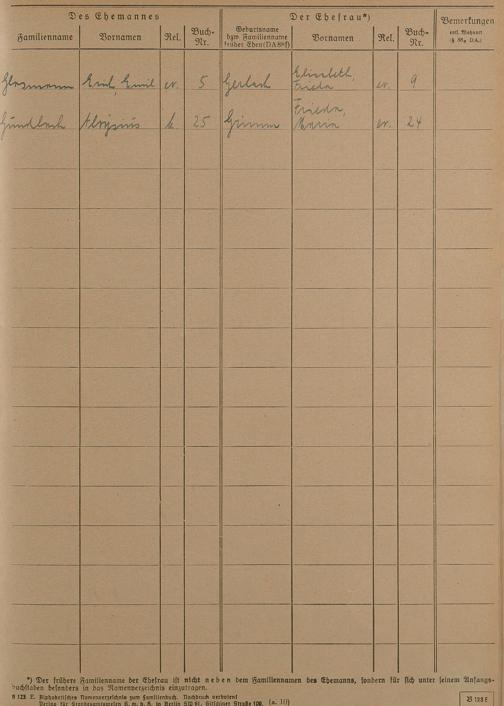 Des Ehemannes Der Ehefrau*) Bemerkungen
Familienname Vornamen Rel. Buch-Nr. Geburtsname bzw. Familienname früher. Ehen (DA 88f) Vornamen Rel. Buch-Nr. evtl. Wohnort
Glasmann Emil ev. 5 Gerlach Elisabeth, Frieda ev. 9
Gundlach Aloysius k 25 Grimm Frieda, Maria ev. 24
*) Der frühere Familienname der Ehefrau ist nicht neben dem Familiennamen des Ehemanns, sondern für sich unter seinem Anfangs-
buchstaben besonders in das Namenverzeichnis einzutragen.
B 123 E. Alphabetisches Namenverzeichnis zum Familienbuch. Nachdruck verboten!
Verlag für Standesamtswesen G. m. b. H. in Berlin SW 61, Gitschiner Straße 109.
B 123 E